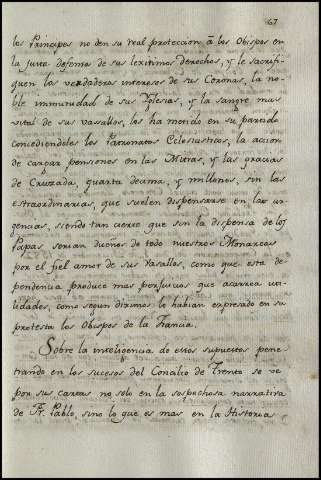 67
los Principes no den su real proteccion à los Obispos en
la justa defensa de sus lexitimos derechos, y le sacrifi-
quen los verdaderos intereses de sus Coronas, la no-
ble inmunidad de sus Yglesias, y la sangre mas
vital de sus vasallos, los ha metido en su partido
concediendoles los Patronatos Eclesiasticos, la accion
de cargar pensiones en las Mitras, y las gracias
de Cruzada, quarta decima, y millones, sin las
extraordinarias, que suelen dispensarse en las ur-
gencias, siendo tan cierto que sin la dispensa de los
Papas serian dueños de todo nuestros Monarcas
por el fiel amor de sus Vasallos, como que esta de-
pendencia produce mas perjuicios que acarrea uti-
lidades, como segun diximos lo habian expresado en su
protesta los Obispos de la Francia.
Sobre la inteligencia de estos supuestos pene-
trando en los sucesos del Concilio de Trento se ve
por sus cartas no solo en la sospechosa narrativa
de Fr. Pablo, sino lo que es mas en la Historia